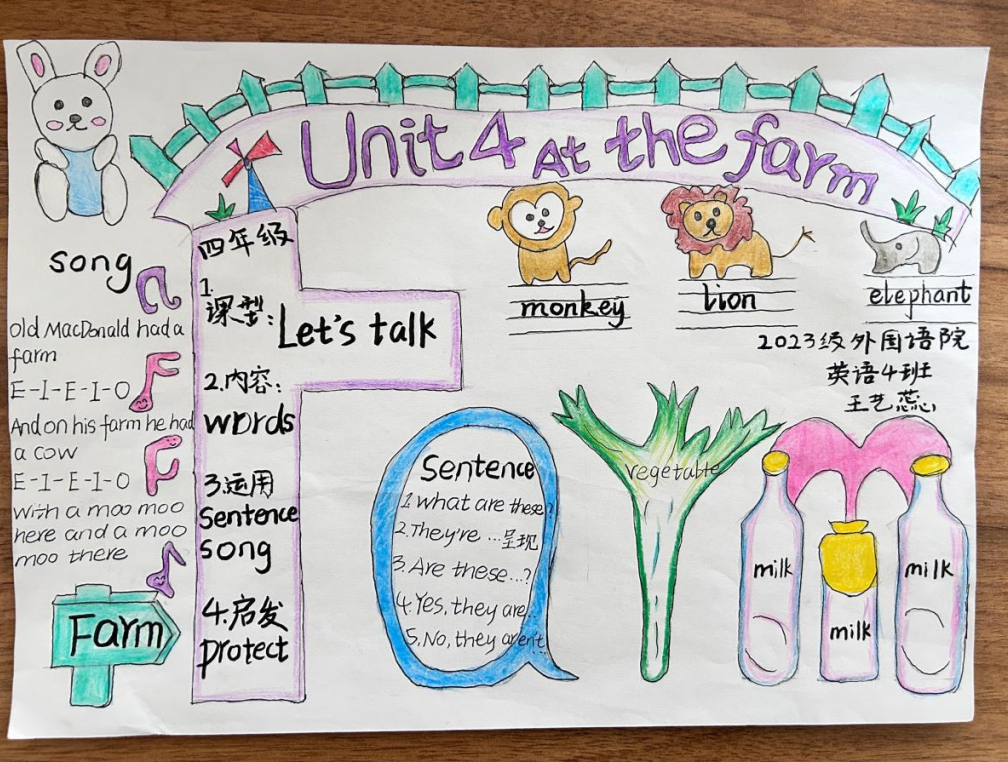 Unit 4 At the farm
song
old MacDonald had a
farm
E-I-E-I-O
And on his farm he had
a cow
E-I-E-I-O
With a moo moo
here and a moo
moo there
Farm
四年级
1.
课型: Let's talk
2.内容:
words
3.运用
sentence
song
4.启发
protect
monkey
lion
elephant
2023级外国语院
英语4班
王艺蕊
Sentence
1. what are these?
2. They're ...呈现
3. Are these...?
4. Yes, they are.
5. No, they aren't.
vegetable
milk
milk
milk